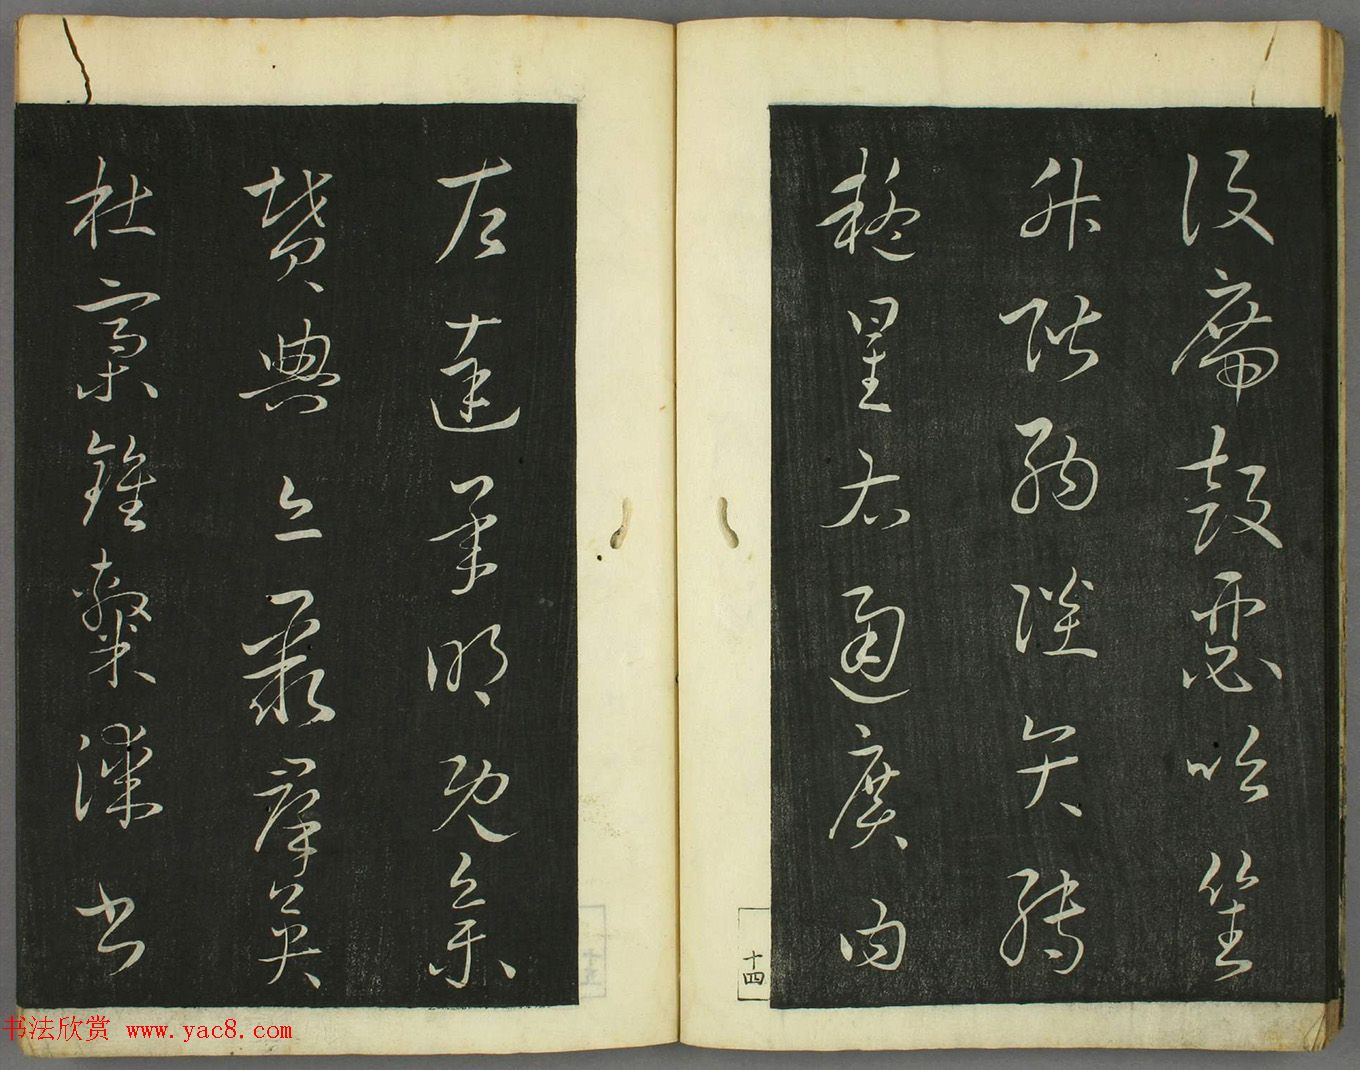 設席鼓瑟吹笙
升階納陛弁轉
疑星右通廣內
十四
左達承明既集
墳典亦聚群英
杜稾鍾隸漆書
书法欣赏 www.yac8.com